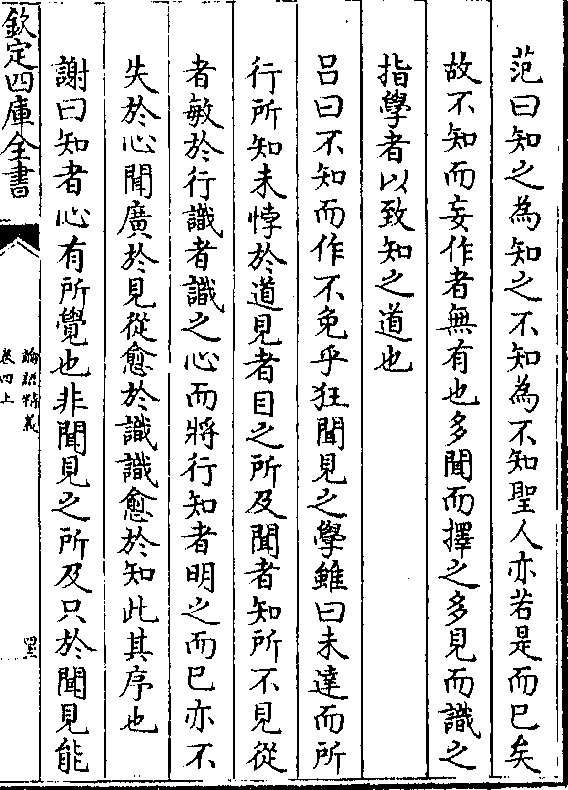 范曰知之為知之不知為不知聖人亦若是而已矣
故不知而妄作者無有也多聞而擇之多見而識之
指學者以致知之道也
呂曰不知而作不免乎狂聞見之學雖曰未達而所
行所知未悖於道見者目之所及聞者知所不見從
者敏於行識者識之心而將行知者明之而已亦不
失於心聞廣於見從愈於識識愈於知此其序也
謝曰知者心有所覺也非聞見之所及只於聞見能
欽定四庫全書
論語精義
卷四上